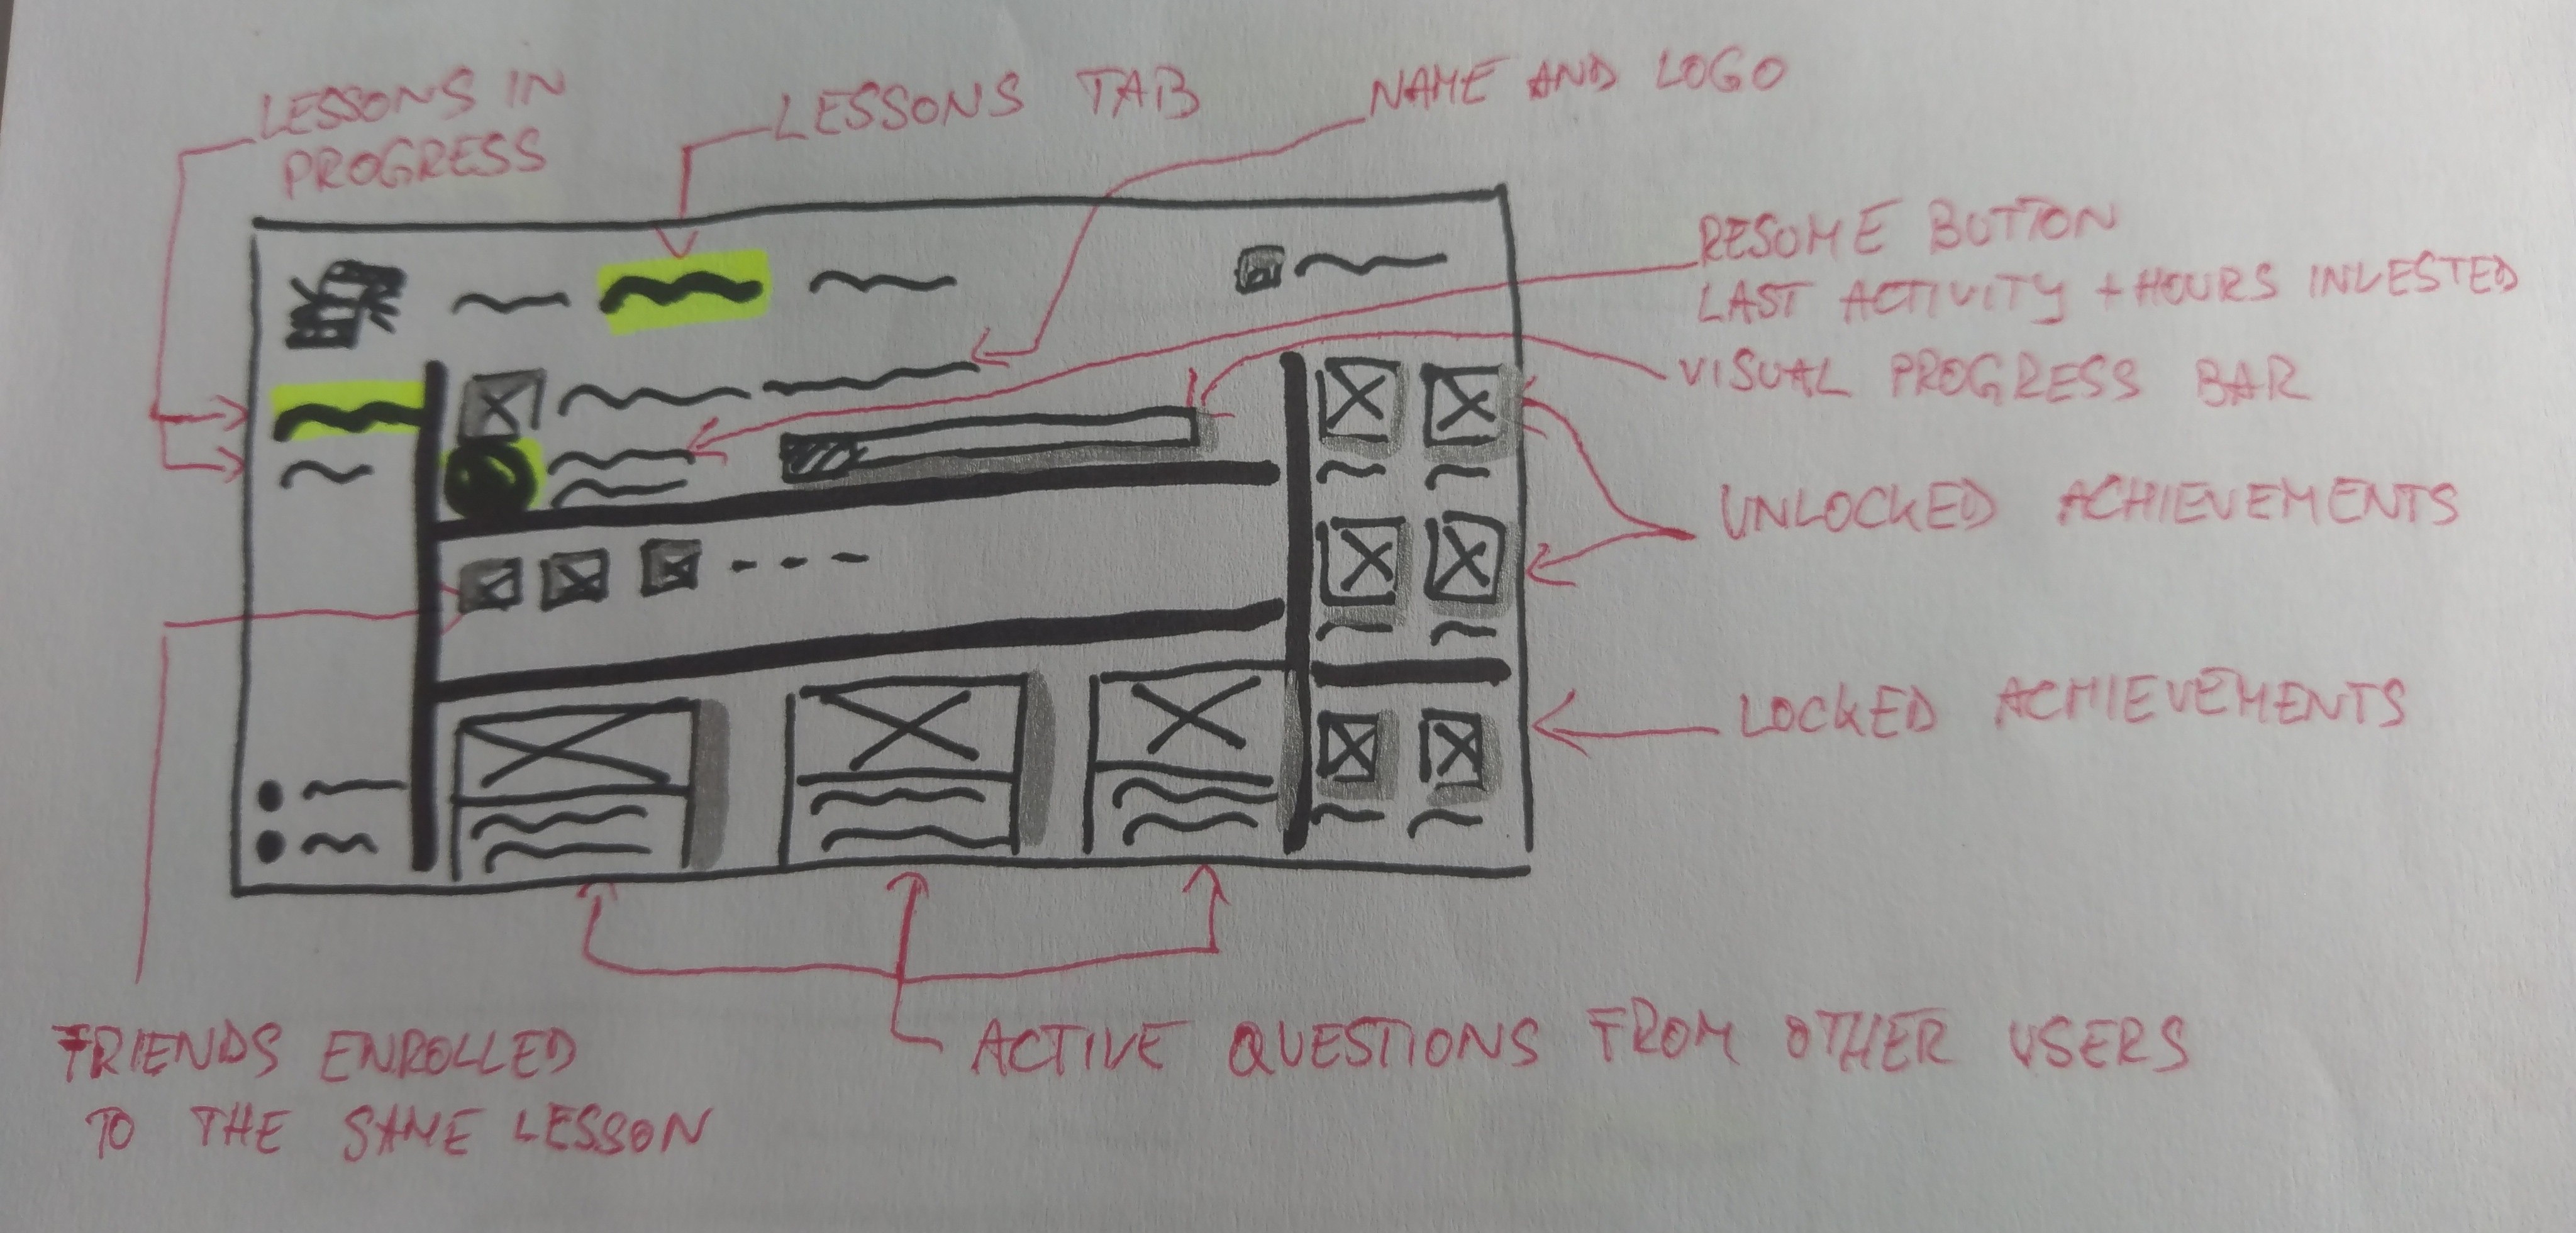 LESSONS IN
PROGRESS
LESSONS TAB
NAME AND LOGO
RESUME BUTTON
LAST ACTIVITY + HOURS INVESTED
VISUAL PROGRESS BAR
UNLOCKED ACHIEVEMENTS
LOCKED ACHIEVEMENTS
FRIENDS ENROLLED
TO THE SAME LESSON
ACTIVE QUESTIONS FROM OTHER USERS